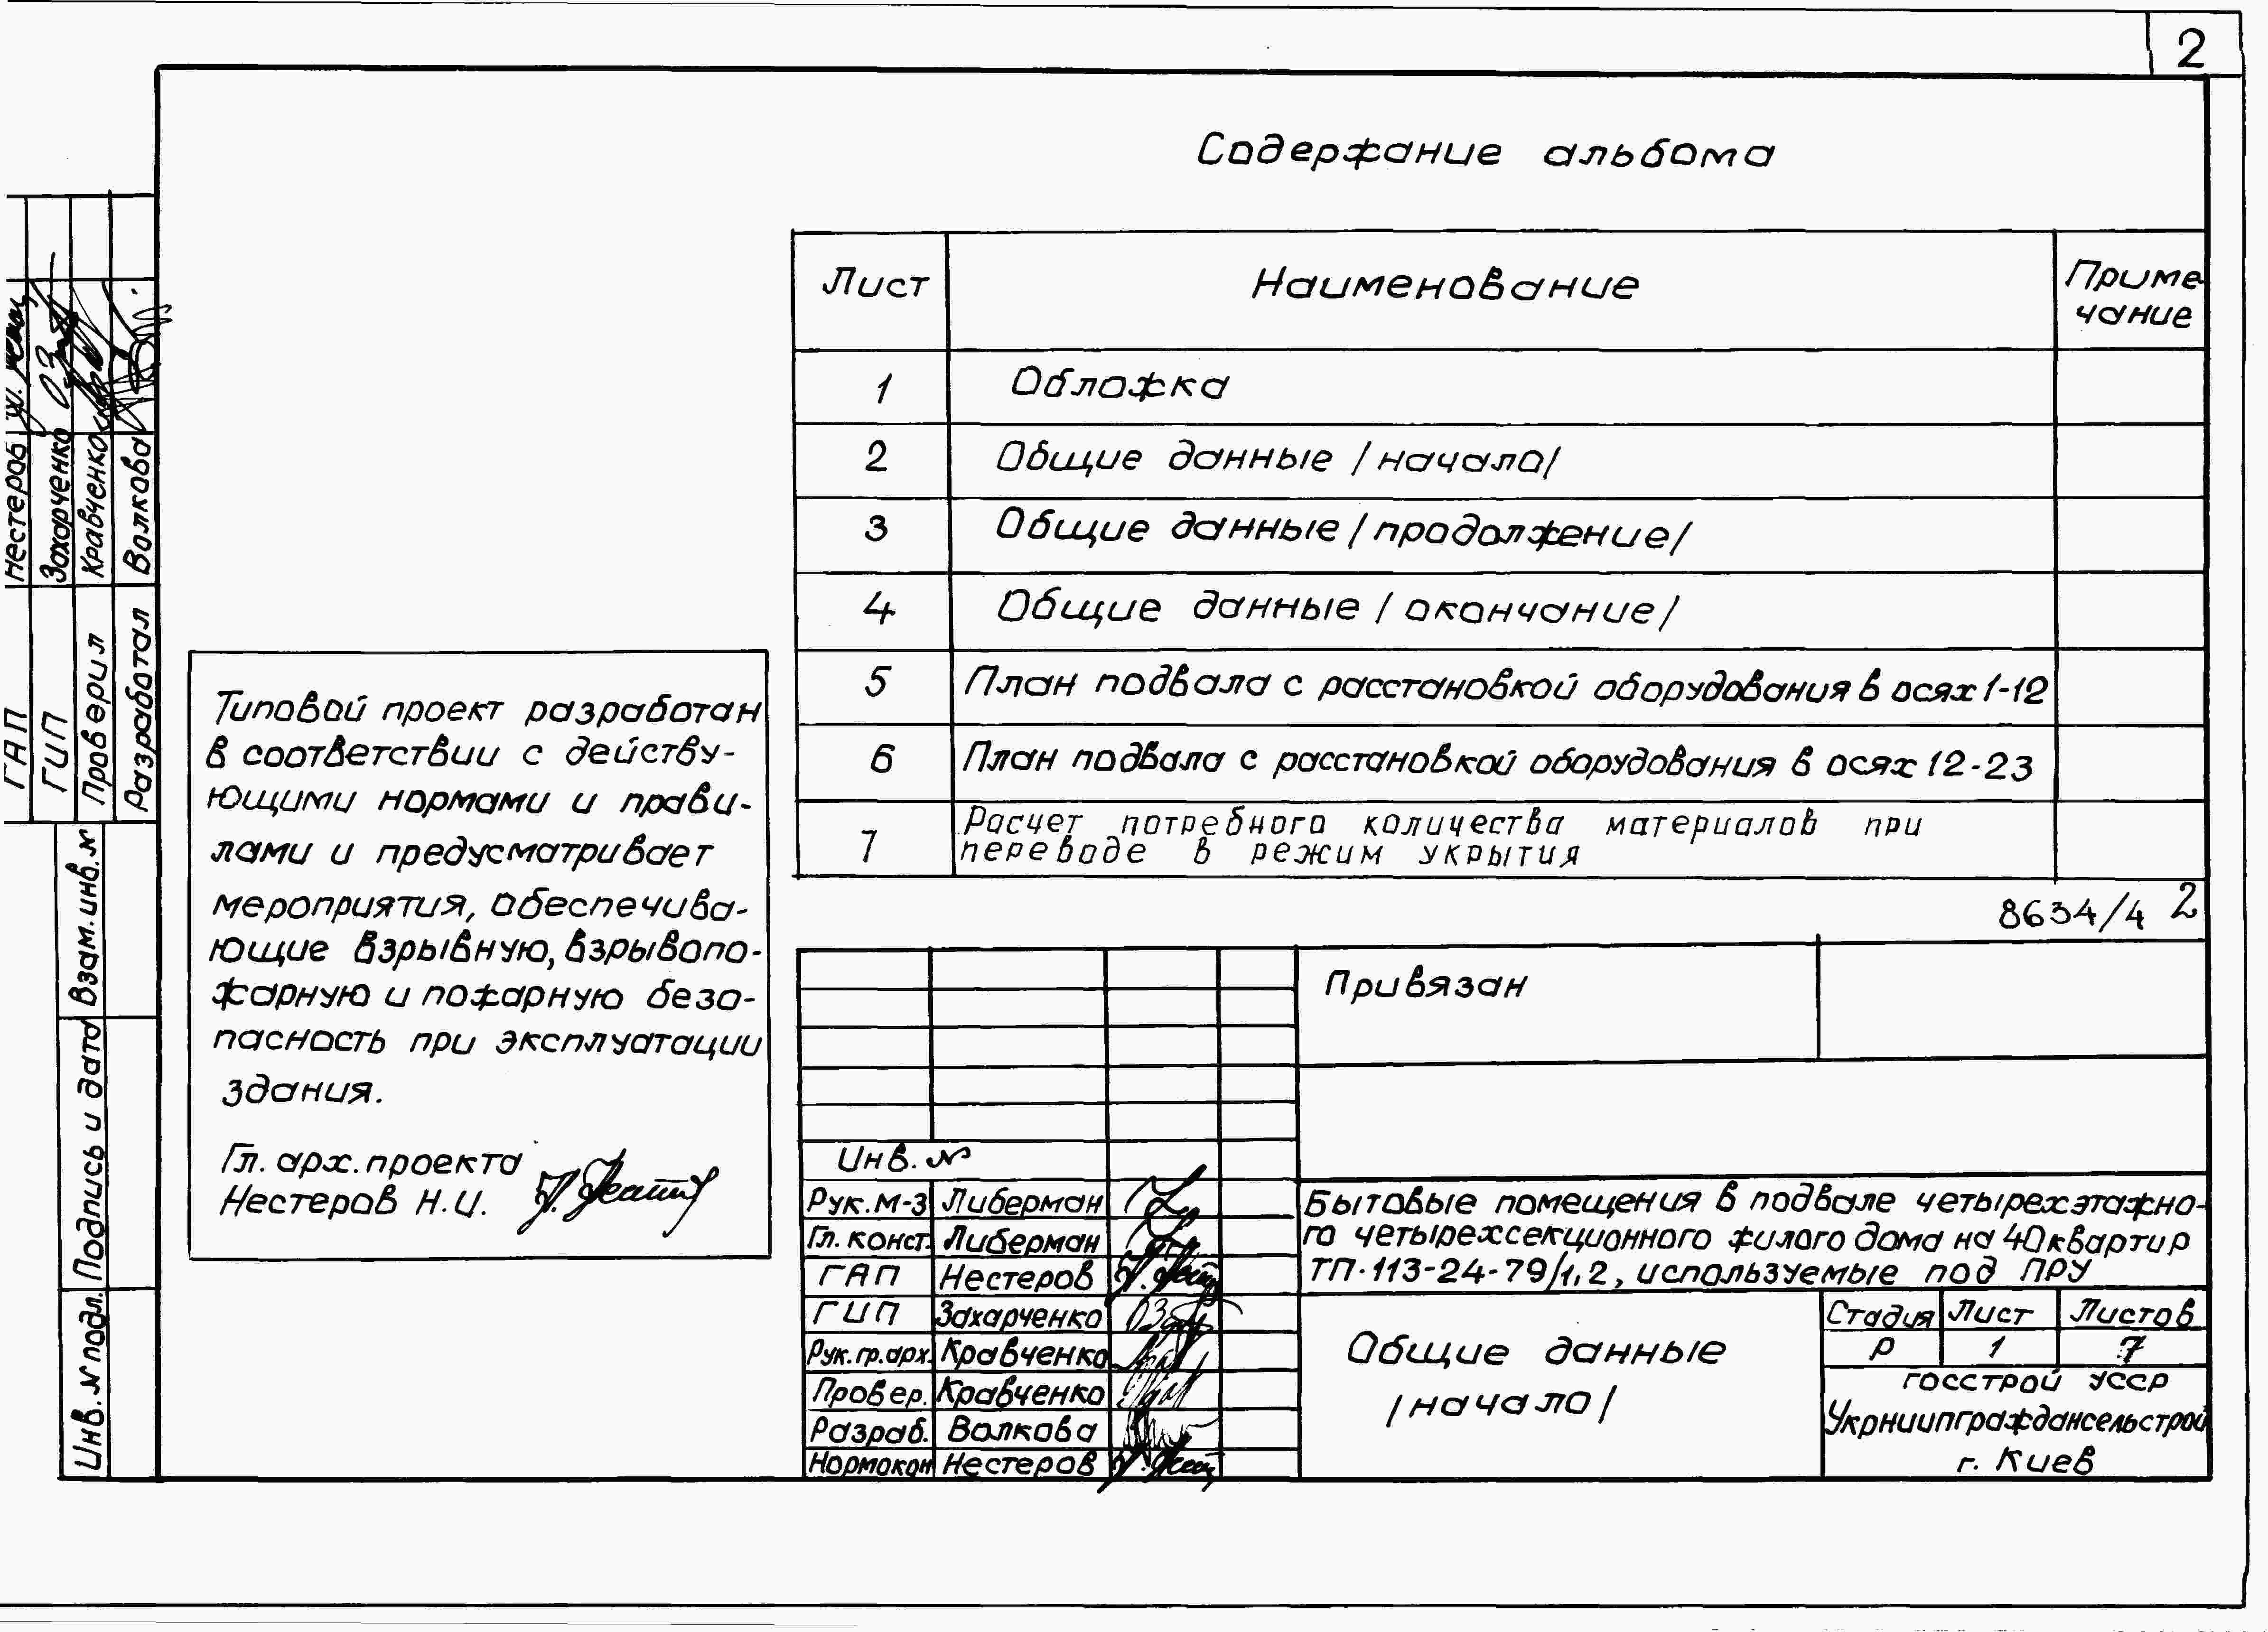 2
Содержание альбома
Лист Наименование Приме
чание
1 Обложка
2 Общие данные /начало/
3 Общие данные /продолжение/
4 Общие данные /окончание/
5 План подвала с расстановкой оборудования в осях 1-12
6 План подвала с расстановкой оборудования в осях 12-23
7 Расчет потребного количества материалов при
переводе в режим укрытия
8634/4 2
Типовой проект разработан
в соответствии с действу-
ющими нормами и прави-
лами и предусматривает
мероприятия, обеспечива-
ющие взрывную, взрывопо-
жарную и пожарную безо-
пасность при эксплуатации
здания.
Гл. арх. проекта
Нестеров Н.И.
ГАП Нестеров
ГИП Захарченко
Проверил Кравченко
Разработал Волкова
Взам. инв. №
Подпись и дата
Инв. № подл.
Привязан
Инв. №
Рук. М-3 Либерман
Гл. конст. Либерман
ГАП Нестеров
ГИП Захарченко
Рук. гр. арх. Кравченко
Провер. Кравченко
Разраб. Волкова
Нормокон Нестеров
Бытовые помещения в подвале четырехэтажно-
го четырехсекционного жилого дома на 40 квартир
ТП·113-24-79/1.2, используемые под ПРУ
Общие данные
/начало/
Стадия Лист Листов
Р 1 7
госстрой УССР
Укрниипграждансельстрой
г. Киев